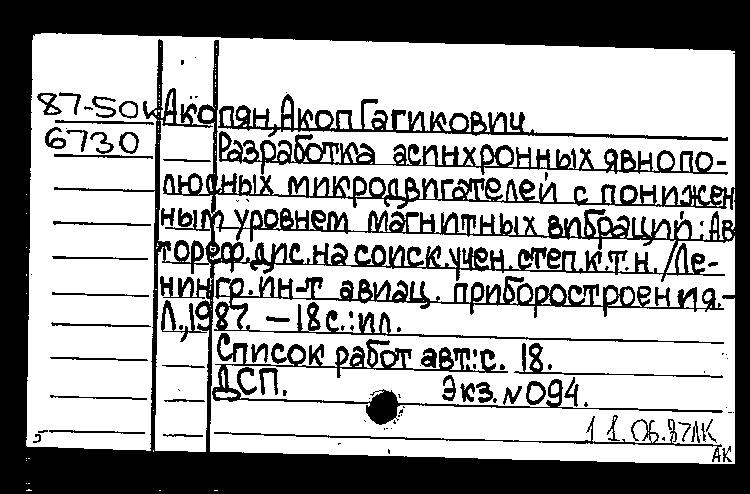 87-50к Акопян, Акоп Гагикович.
6730
Разработка асинхронных явнопо-
люсных микродвигателей с понижен
ным уровнем магнитных вибраций: Ав
тореф. дис. на соиск. учен. степ. к.т.н. /Ле-
нингр. ин-т авиац. приборостроения.-
Л., 1987. – 18 с.: ил.
Список работ авт.: с. 18.
ДСП. Экз. N 094.
11.06.87 ЛК
АК